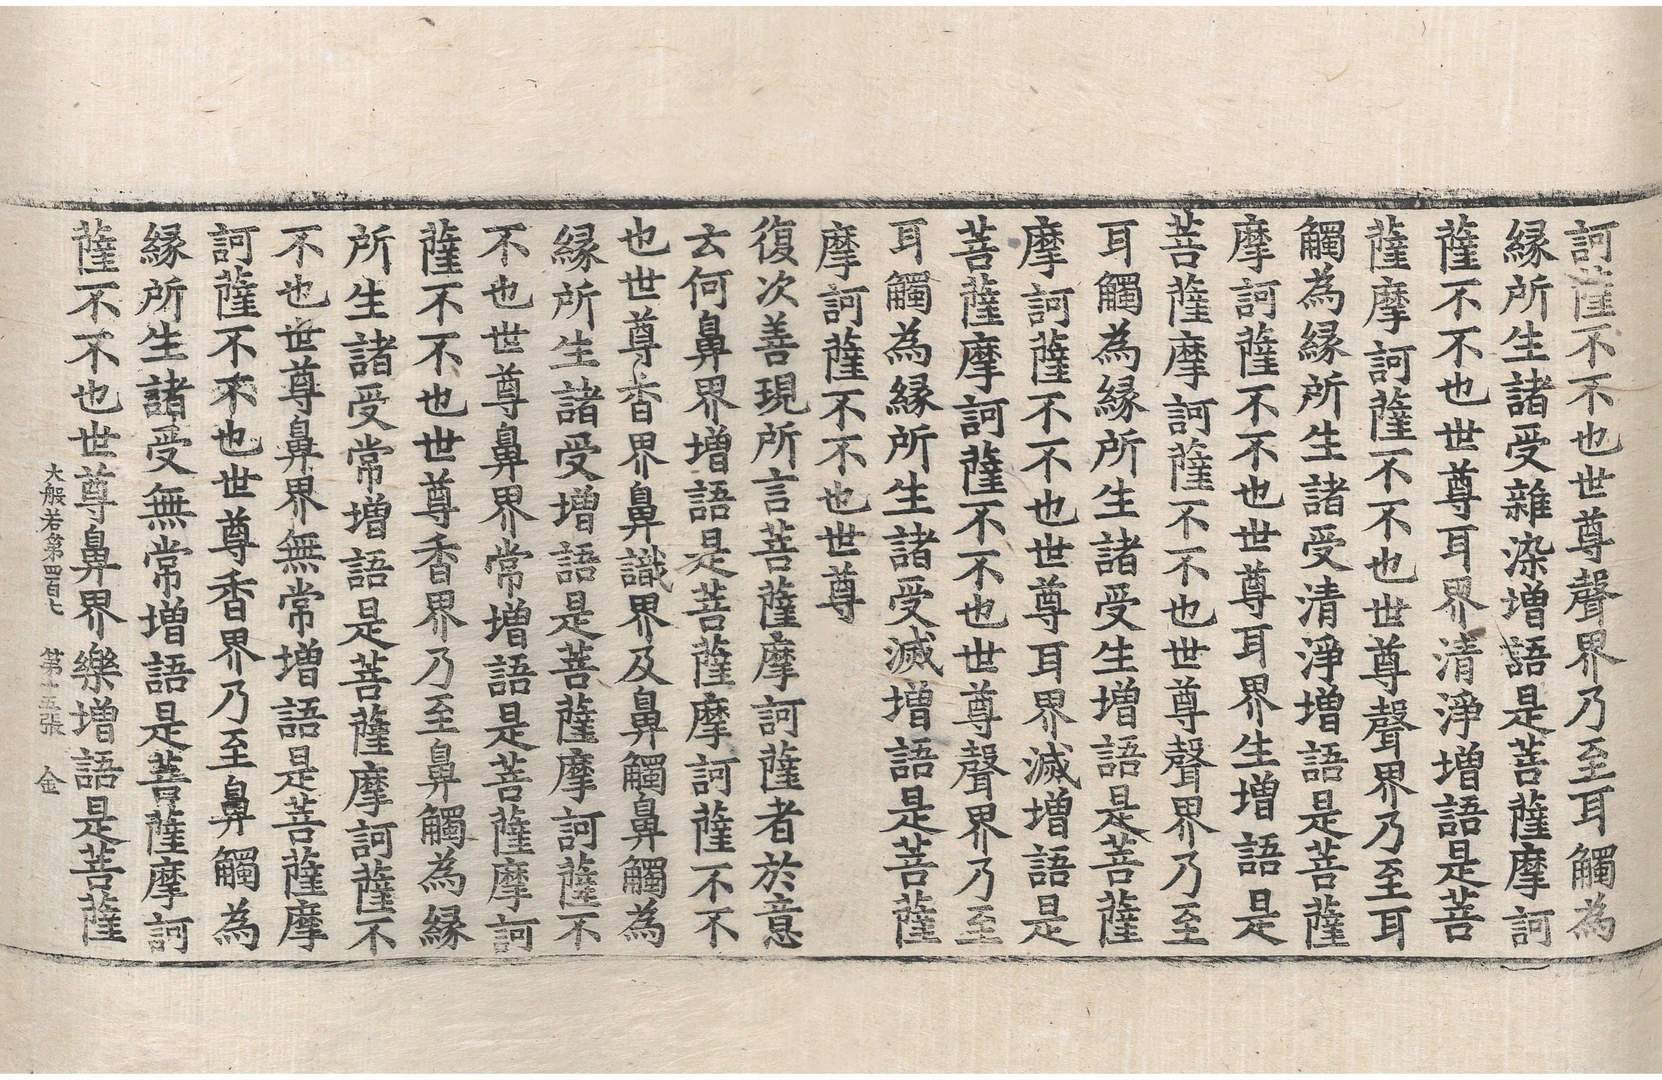 訶薩不不也世尊聲界乃至耳觸為
緣所生諸受雜染增語是菩薩摩訶
薩不不也世尊耳界清淨增語是菩
薩摩訶薩不不也世尊聲界乃至耳
觸為緣所生諸受清淨增語是菩薩
摩訶薩不不也世尊耳界生增語是
菩薩摩訶薩不不也世尊聲界乃至
耳觸為緣所生諸受生增語是菩薩
摩訶薩不不也世尊耳界滅增語是
菩薩摩訶薩不不也世尊聲界乃至
耳觸為緣所生諸受滅增語是菩薩
摩訶薩不不也世尊
復次善現所言菩薩摩訶薩者於意
云何鼻界增語是菩薩摩訶薩不不
也世尊香界鼻識界及鼻觸鼻觸為
緣所生諸受增語是菩薩摩訶薩不
不也世尊鼻界常增語是菩薩摩訶
薩不不也世尊香界乃至鼻觸為緣
所生諸受常增語是菩薩摩訶薩不
不也世尊鼻界無常增語是菩薩摩
訶薩不不也世尊香界乃至鼻觸為
緣所生諸受無常增語是菩薩摩訶
薩不不也世尊鼻界樂增語是菩薩
大般若第四百七 第十五張 金